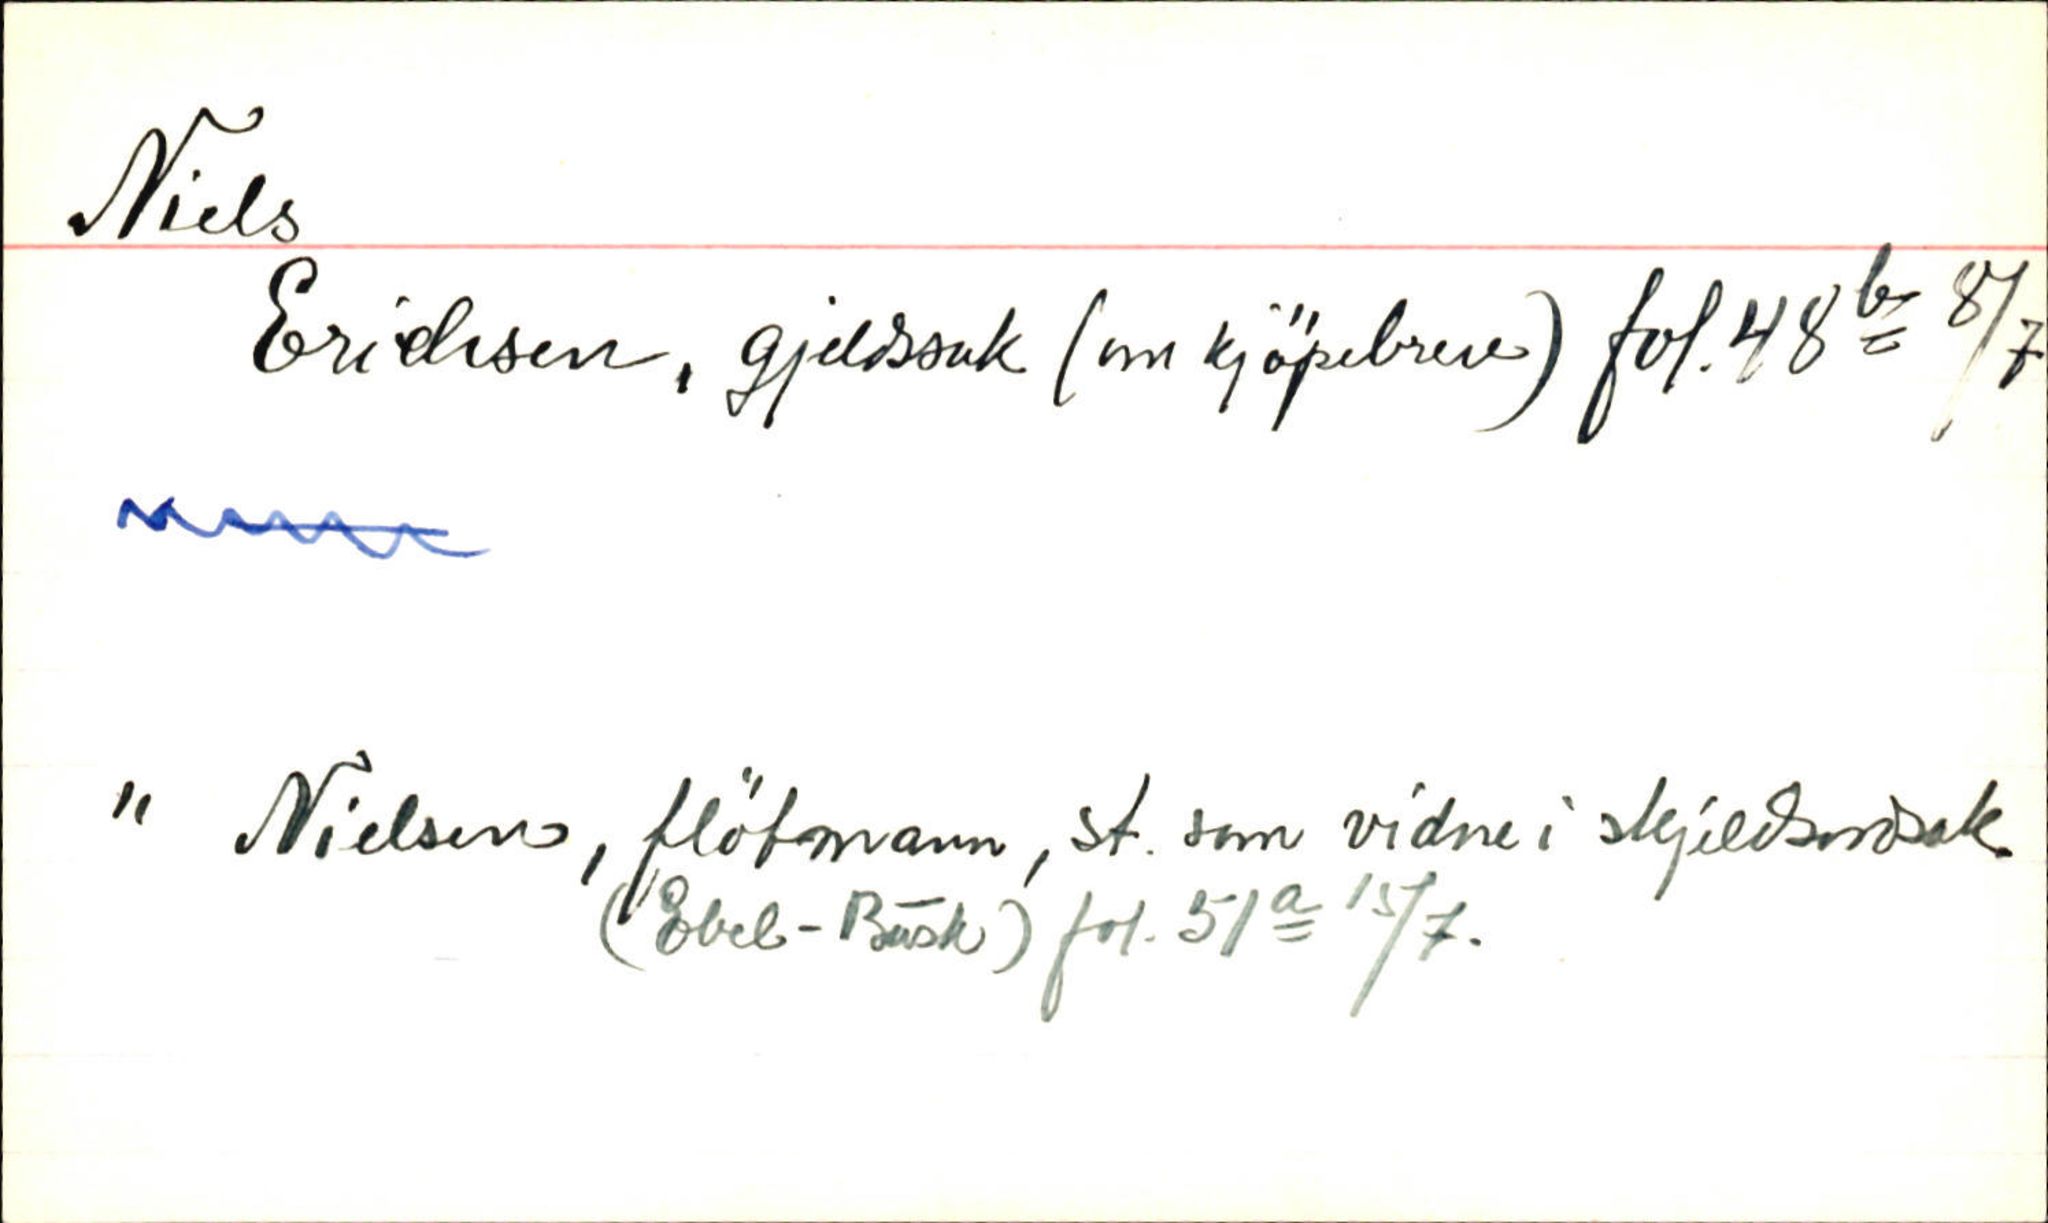 Niels
Erichsen, gjeldssak (om kjöpebrev) fol. 48 b 8/7
" Nielsen, flötmann, st. som vidne i skjeldsordsak
(Ebel - Busk) fol. 51 a 15/7.